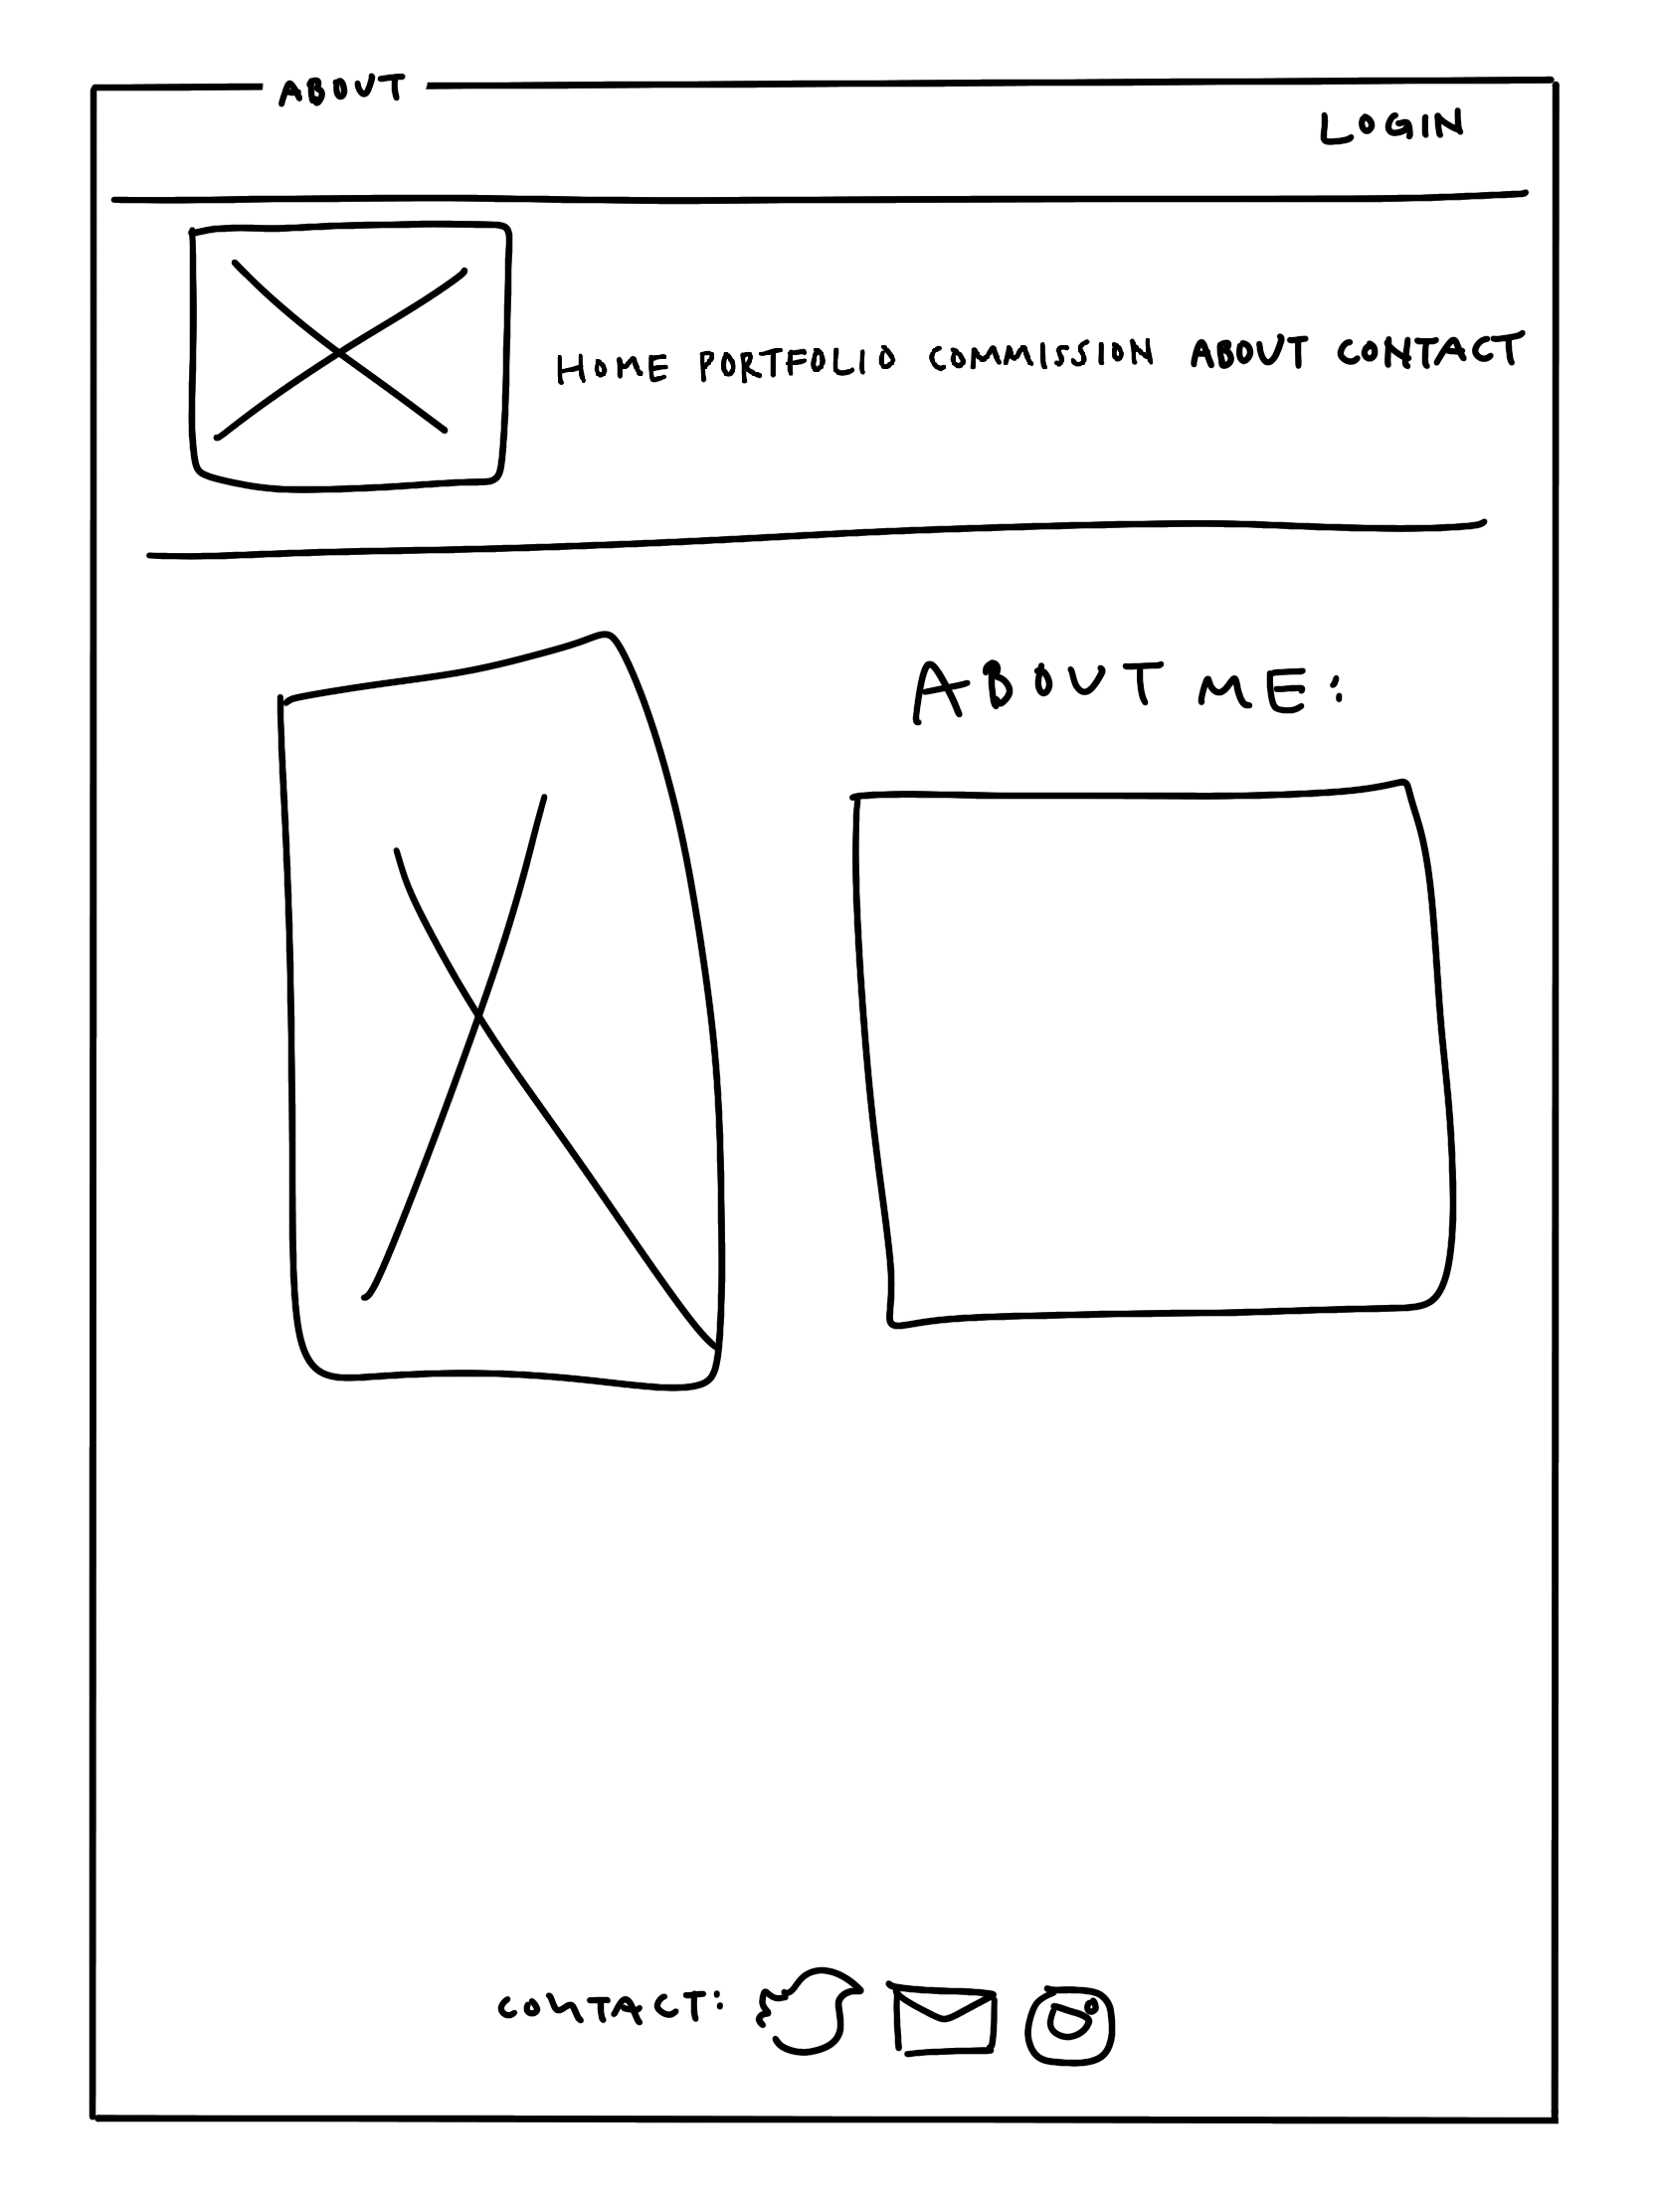 ABOUT
LOGIN
HOME PORTFOLIO COMMISSION ABOUT CONTACT
ABOUT ME:
CONTACT: